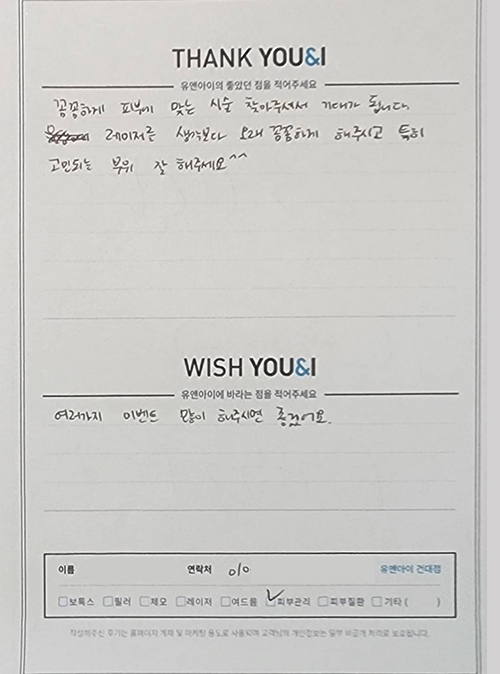 THANK YOU&I
유앤아이의 좋았던 점을 적어주세요
꼼꼼하게 피부에 맞는 시술 찾아주셔서 기대가 됩니다.
레이저를 생각보다 오래 꼼꼼하게 해주시고 특히
고민되는 부위 잘 해주세요^^
WISH YOU&I
유앤아이에 바라는 점을 적어주세요
여러가지 이벤트 많이 해주시면 좋겠어요.
이름 연락처 010 유앤아이 건대점
보톡스 필러 제모 레이저 여드름 피부관리 피부질환 기타 ( )
작성해주신 후기는 홈페이지 게재 및 마케팅 용도로 사용되며 고객님의 개인정보는 일부 비공개 처리로 보호됩니다.